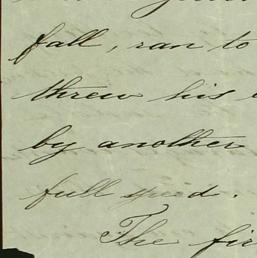 fall, ran to
threw his
by another
full speed.
The